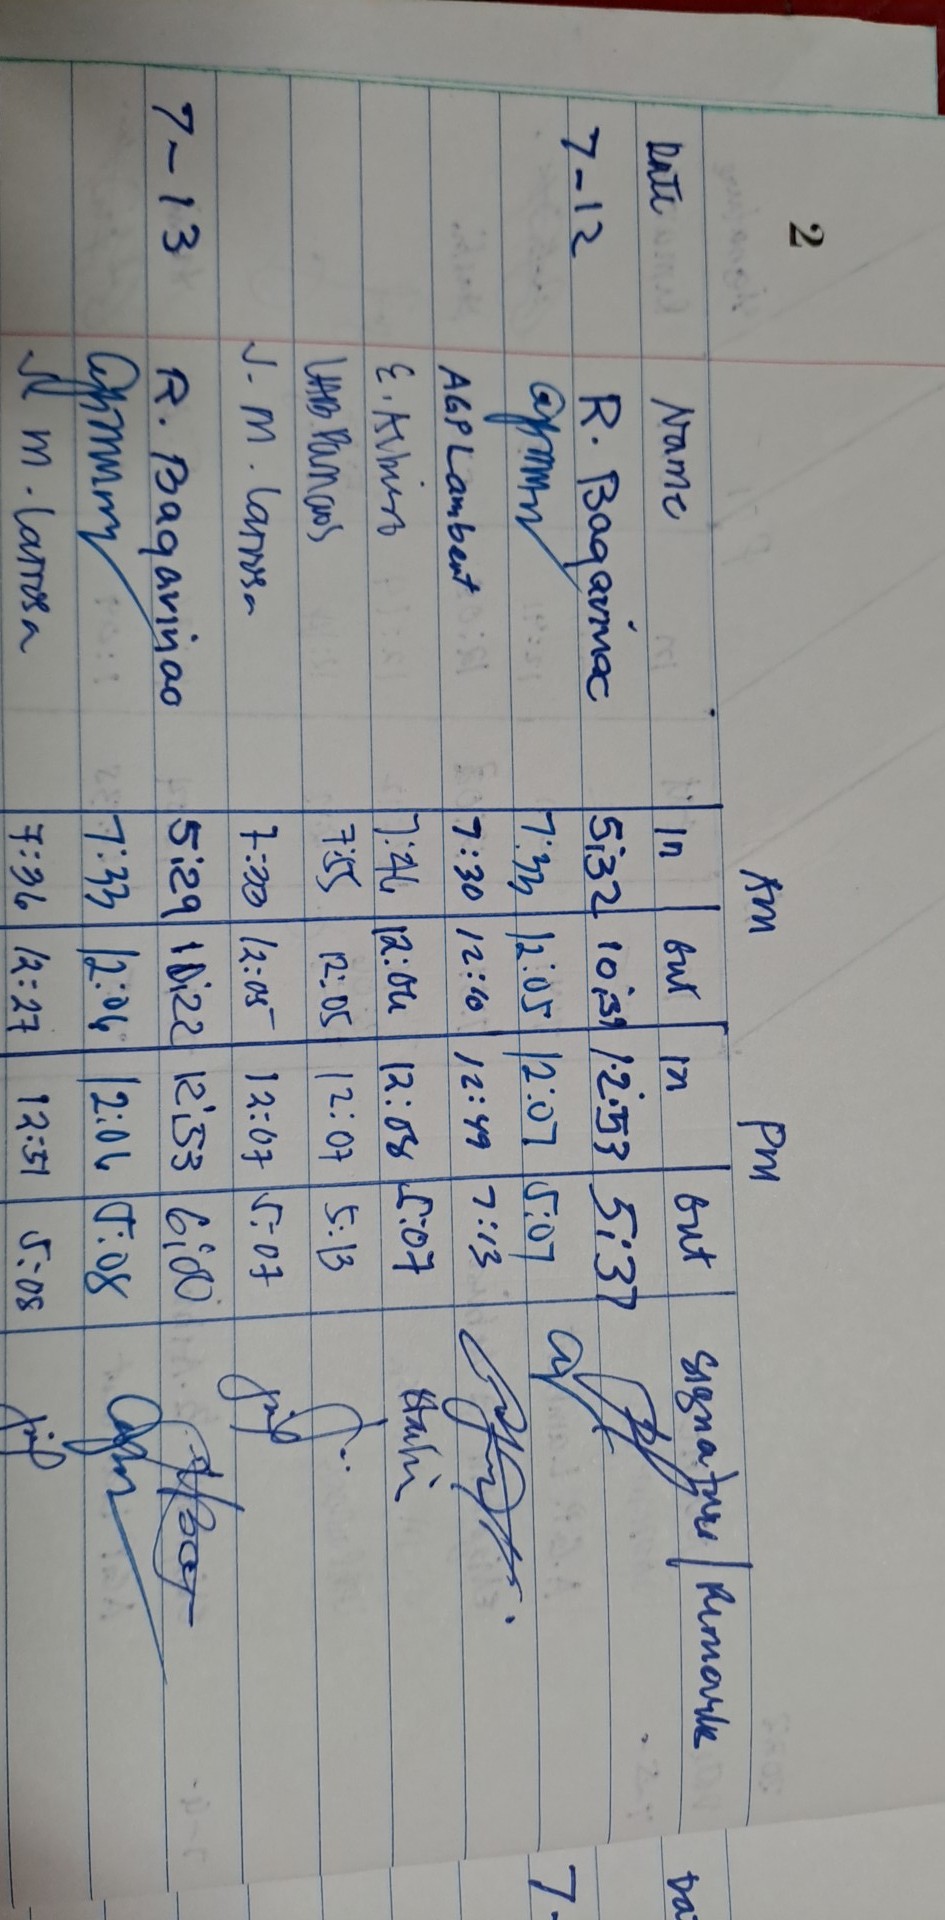 2
Am Pm
Date Name In Out In Out Signature Remark
7-12 R. Bagarinao 5:32 10:39 12:53 5:37
7:33 12:05 12:07 5:07
AGPLambent 7:30 12:10 12:49 7:13
E. 12:04 12:08 5:07
7:55 12:05 12:07 5:13
J. M. Larrosa 7:30 12:05 12:07 5:07
7-13 R. Bagarinao 5:29 10:22 12:53 6:00
7:33 12:04 12:06 5:08
J M. Larrosa 7:36 12:27 12:51 5:08
Da
7-